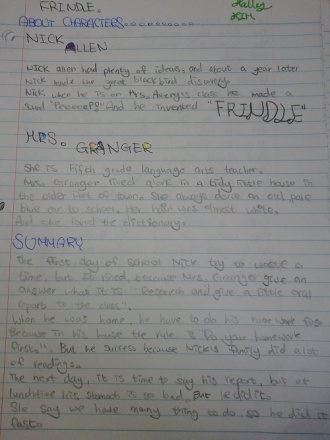 FRINDE.
ABOUT CHARACTERS
NICK ALLEN
Nick allen had plenty of ideas, and about a year later
Nick made the great black bird discovery.
Nick when he is on Mrs. Avery's class he made a
sound "Peeeeepp" And he invented "FRINDLE"
MRS. GRANGER
She is fifth grade language arts teacher.
Mrs. Granger lived alone in a tidy little house in
the older part of town. She always
blue to school. Her hair was almost white.
And she loved the dictionary.
SUMMARY
The first day of school Nick try to waste a
time, but he failed, because Mrs. Granger give an
answer what it is "Research and give a little oral
report to the class".
When he was home, he have to do his home work first
Because in his house the rule is "Do your homework
first". But he success because Nick's family did a lot
of readings.
The next day, it is time to say his report, but at
lunchtime his stomach is so bad, But he did it.
She say we have many thing to do, so he did it
fast.